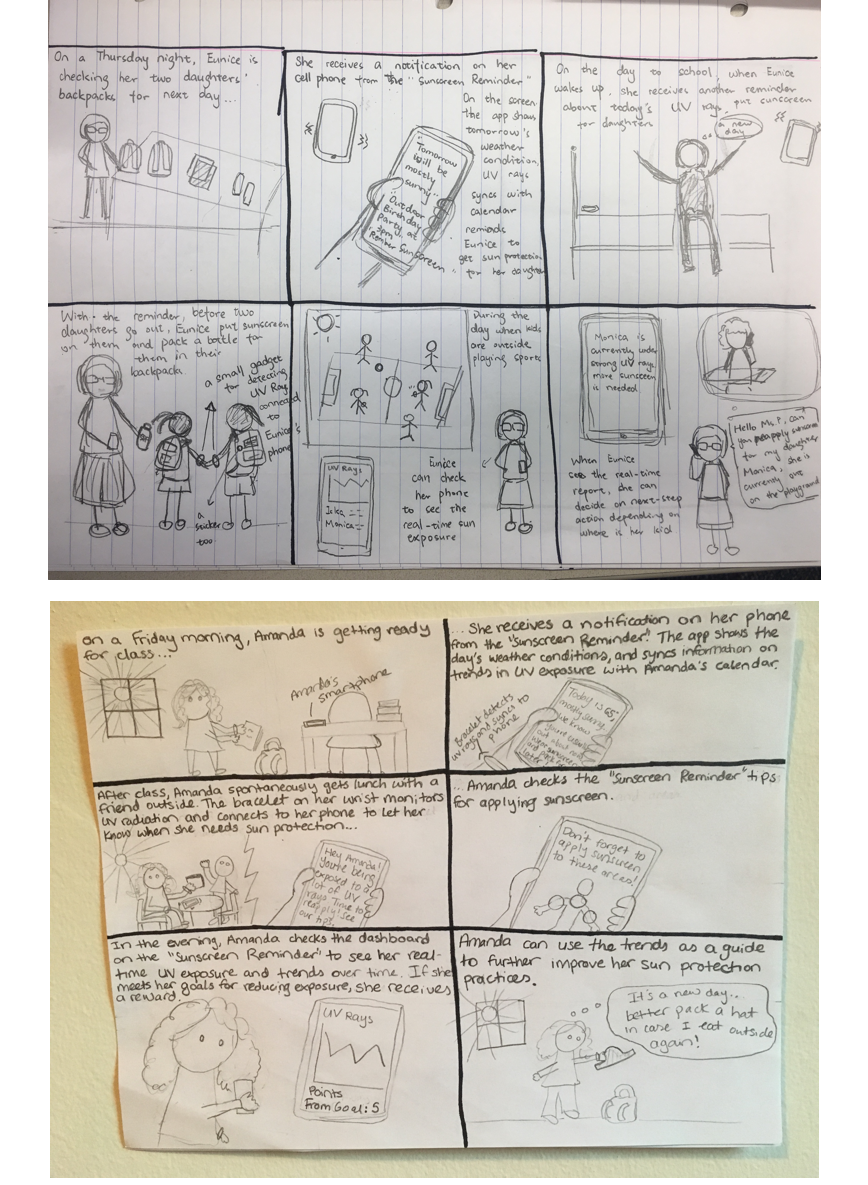 On a Thursday night, Eunice is
checking her two daughters'
backpacks for next day...
She receives a notification on her
cell phone from the "Sunscreen Reminder"
On the screen
the app shows
tomorrow's
weather
condition,
UV rays
syncs with
calendar
reminds
Eunice to
get sun protection
for her daughter
"Tomorrow
will be
mostly
sunny"
"Outdoor
Birthday
Party at
3pm,
Sunscreen"
On the day to school, when Eunice
wakes up, she receives another reminder
about today's UV rays, put sunscreen
for daughters
a new
day
With the reminder, before two
daughters go out, Eunice put sunscreen
on them and pack a bottle for
them in their
backpack
a small gadget
for detecting
UV Ray
connected
to
Eunice's
phone
a
sticker
too
During the
day when kids
are outside
playing sports
UV Rays
Monica
Eunice
can check
her phone
to see the
real-time sun
exposure
Monica is
currently under
strong UV rays
more sunscreen
is needed
When Eunice
sees the real-time
report, she can
decide on next-step
action depending on
where is her kid
Hello Ms. P, can
you apply sunscreen
for my daughter
Monica, she is
currently out
on the playground
on a Friday morning, Amanda is getting ready
for class...
Amanda's
smartphone
... She receives a notification on her phone
from the "Sunscreen Reminder." The app shows the
day's weather conditions, and syncs information on
trends in UV exposure with Amanda's calendar.
Bracelet detects
uv rays and syncs to
phone
Today is 65,
mostly sunny.
we know
After class, Amanda spontaneously gets lunch with a
friend outside. The bracelet on her wrist monitors
UV radiation and connects to her phone to let her
know when she needs sun protection...
Hey Amanda!
you're being
exposed to a
lot of UV
rays. Time to
reapply! See
our tips.
... Amanda checks the "Sunscreen Reminder" tips
for applying sunscreen.
Don't forget to
apply sunscreen
to these areas!
In the evening, Amanda checks the dashboard
on the "Sunscreen Reminder" to see her real-
time UV exposure and trends over time. If she
meets her goals for reducing exposure, she receives
a reward.
UV Rays
Points
From Goal: 5
Amanda can use the trends as a guide
to further improve her sun protection
practices.
It's a new day...
better pack a hat
in case I eat outside
again!